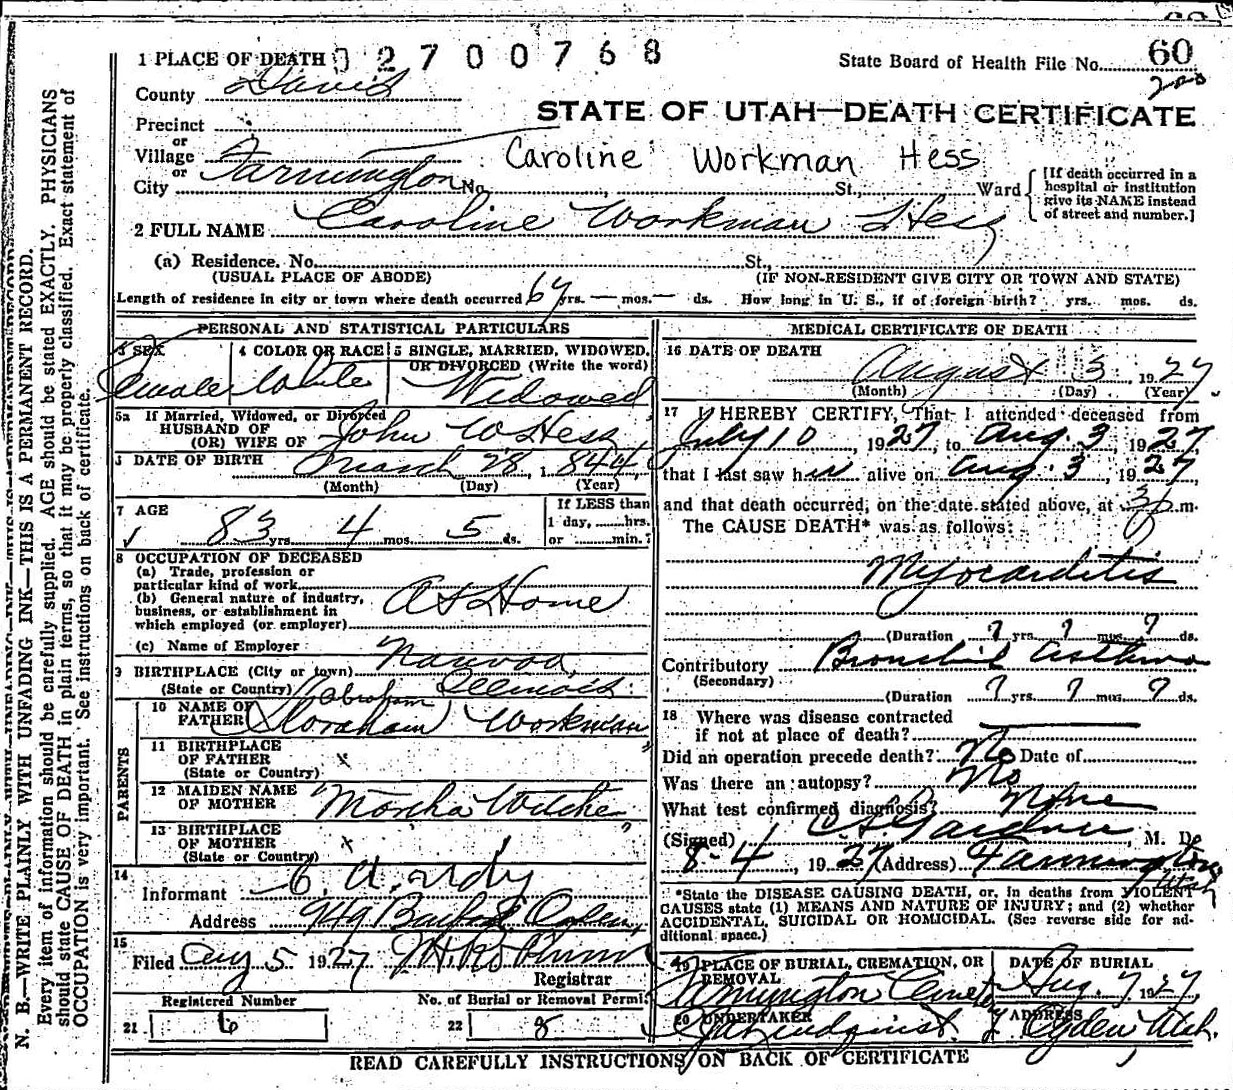 1 PLACE OF DEATH 02700768
State Board of Health File No. 60
200
County Davis
STATE OF UTAH—DEATH CERTIFICATE
Precinct
or
Village
Caroline Workman Hess
or
City Farmington No. St., Ward
[If death occurred in a
hospital or institution
give its NAME instead
of street and number.]
2 FULL NAME Caroline Workman Hess
(a) Residence. No. St.,
(USUAL PLACE OF ABODE) (IF NON-RESIDENT GIVE CITY OR TOWN AND STATE)
Length of residence in city or town where death occurred 67 yrs. — mos. — ds. How long in U. S., if of foreign birth? yrs. mos. ds.
PERSONAL AND STATISTICAL PARTICULARS
3 SEX 4 COLOR OR RACE 5 SINGLE, MARRIED, WIDOWED,
OR DIVORCED (Write the word)
Female White Widowed
5a If Married, Widowed, or Divorced
HUSBAND OF
(OR) WIFE OF John W Hess
DATE OF BIRTH March 28, 1844
(Month) (Day) (Year)
7 AGE If LESS than
1 day, hrs.
83 yrs. 4 mos. 5 ds. or min.?
8 OCCUPATION OF DECEASED
(a) Trade, profession or
particular kind of work
(b) General nature of industry,
business, or establishment in
which employed (or employer) At Home
(c) Name of Employer
9 BIRTHPLACE (City or town) Nauvoo,
(State or Country) Illinois
PARENTS
Abraham
10 NAME OF
FATHER Abraham Workman
11 BIRTHPLACE
OF FATHER
(State or Country) x
12 MAIDEN NAME
OF MOTHER Martha Witcher
13 BIRTHPLACE
OF MOTHER
(State or Country) x
14
Informant C. A. Udy
Address 949 Ogden
15
Filed Aug 5 1927
Registrar
Registered Number No. of Burial or Removal Permit
21 6 22 8
MEDICAL CERTIFICATE OF DEATH
16 DATE OF DEATH
August 3 1927
(Month) (Day) (Year)
17 I HEREBY CERTIFY, That I attended deceased from
July 10, 1927, to Aug. 3, 1927,
that I last saw her alive on Aug. 3, 1927,
and that death occurred, on the date stated above, at 3 p.m.
The CAUSE DEATH* was as follows:
Myocarditis
(Duration ? yrs. ? mos. ? ds.
Contributory Bronchial Asthma
(Secondary)
(Duration ? yrs. ? mos. ? ds.
18 Where was disease contracted
if not at place of death?
Did an operation precede death? No Date of
Was there an autopsy? No
What test confirmed diagnosis? None
(Signed) Gardner, M. D.
8-4, 1927 (Address) Farmington
Utah
*State the DISEASE CAUSING DEATH, or, in deaths from VIOLENT
CAUSES state (1) MEANS AND NATURE OF INJURY; and (2) whether
ACCIDENTAL, SUICIDAL OR HOMICIDAL. (See reverse side for ad-
ditional space.)
19 PLACE OF BURIAL, CREMATION, OR DATE OF BURIAL
REMOVAL
Farmington Cemetery Aug. 7, 1927
20 UNDERTAKER ADDRESS
Lindquist Ogden Utah.
READ CAREFULLY INSTRUCTIONS ON BACK OF CERTIFICATE
N. B.—WRITE PLAINLY WITH UNFADING INK—THIS IS A PERMANENT RECORD.
Every item of information should be carefully supplied. AGE should be stated EXACTLY. PHYSICIANS
should state CAUSE OF DEATH in plain terms, so that it may be properly classified. Exact statement of
OCCUPATION is very important. See instructions on back of certificate.